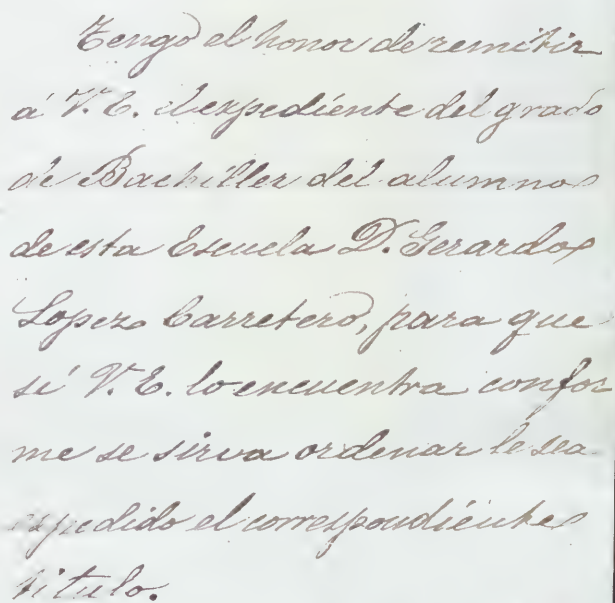 Tengo el honor de remitir
á V.E. el expediente del grado
de Bachiller del alumno
de esta Escuela D. Gerardo
Lopez Carretero, para que
si V.E. lo encuentra confor
me se sirva ordenar le sea
expedido el correspondiente
titulo.